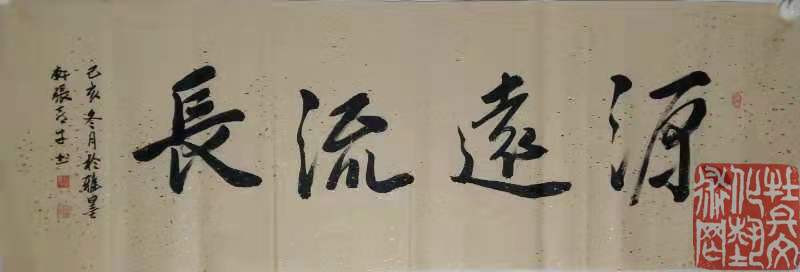 源遠流長
己亥冬月於雅墨
軒張
杜兵文